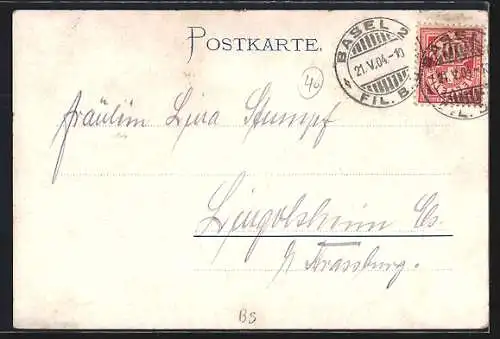 POSTKARTE.
BASEL 2
21.V.04.-10
FIL. B.
40
Fräulein Stumpf
Lingolsheim Es.
b/ Strassburg.
BS